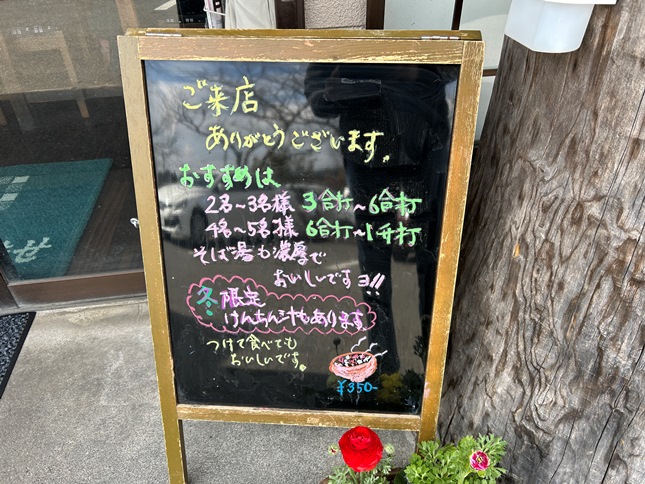 ご来店
ありがとうございます。
おすすめは
2名～3名様 3合打～6合打
4名～5名様 6合打～1升打
そば湯も濃厚で
おいしいですヨ!!
冬限定
けんちん汁もあります
つけて食べても
おいしいです。
¥350-